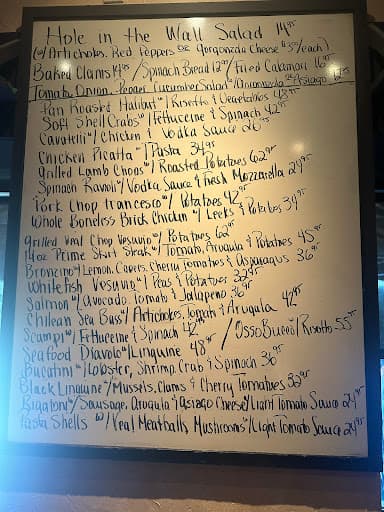 Hole in the Wall Salad 14⁹⁵
(w/ Artichokes, Red Peppers or Gorgonzola Cheese 4.95/each)
Baked Clams 14⁹⁵ / Spinach Bread 12⁹⁵ / Fried Calamari 16⁹⁵
Tomato, Onion, Pepper, Cucumber Salad w/ Asiago 12⁹⁵
Pan Roasted Halibut w/ Risotto & Vegetables 48⁹⁵
Soft Shell Crabs w/ Fettuccine & Spinach 42⁹⁵
Cavatelli w/ Chicken & Vodka Sauce 26⁹⁵
Chicken Picatta w/ Pasta 34⁹⁵
Grilled Lamb Chops w/ Roasted Potatoes 62⁹⁵
Spinach Ravioli w/ Vodka Sauce & Fresh Mozzarella 29⁹⁵
Pork Chop Francesco w/ Potatoes 42⁹⁵
Whole Boneless Brick Chicken w/ Leeks & Potatoes 39⁹⁵
Grilled Veal Chop Vesuvio w/ Potatoes 62⁹⁵
14oz Prime Skirt Steak w/ Tomato, Arugula & Potatoes 45⁹⁵
Broncino w/ Lemon, Capers, Cherry Tomatoes & Asparagus 36⁹⁵
Whitefish Vesuvio w/ Peas & Potatoes 32⁹⁵
Salmon w/ Avocado, Tomato & Jalapeno 36⁹⁵
Chilean Sea Bass w/ Artichokes, Tomato & Arugula 42⁹⁵
Scampi w/ Fettuccine & Spinach 42⁹⁵ / Osso Bucco w/ Risotto 55⁹⁵
Seafood Diavolo w/ Linguine 48⁹⁵
Bucatini w/ Lobster, Shrimp, Crab & Spinach 36⁹⁵
Black Linguine w/ Mussels, Clams & Cherry Tomatoes 32⁹⁵
Rigatoni w/ Sausage, Arugula & Asiago Cheese w/ Light Tomato Sauce 29⁹⁵
Pasta Shells w/ Veal Meatballs, Mushrooms w/ Light Tomato Sauce 29⁹⁵